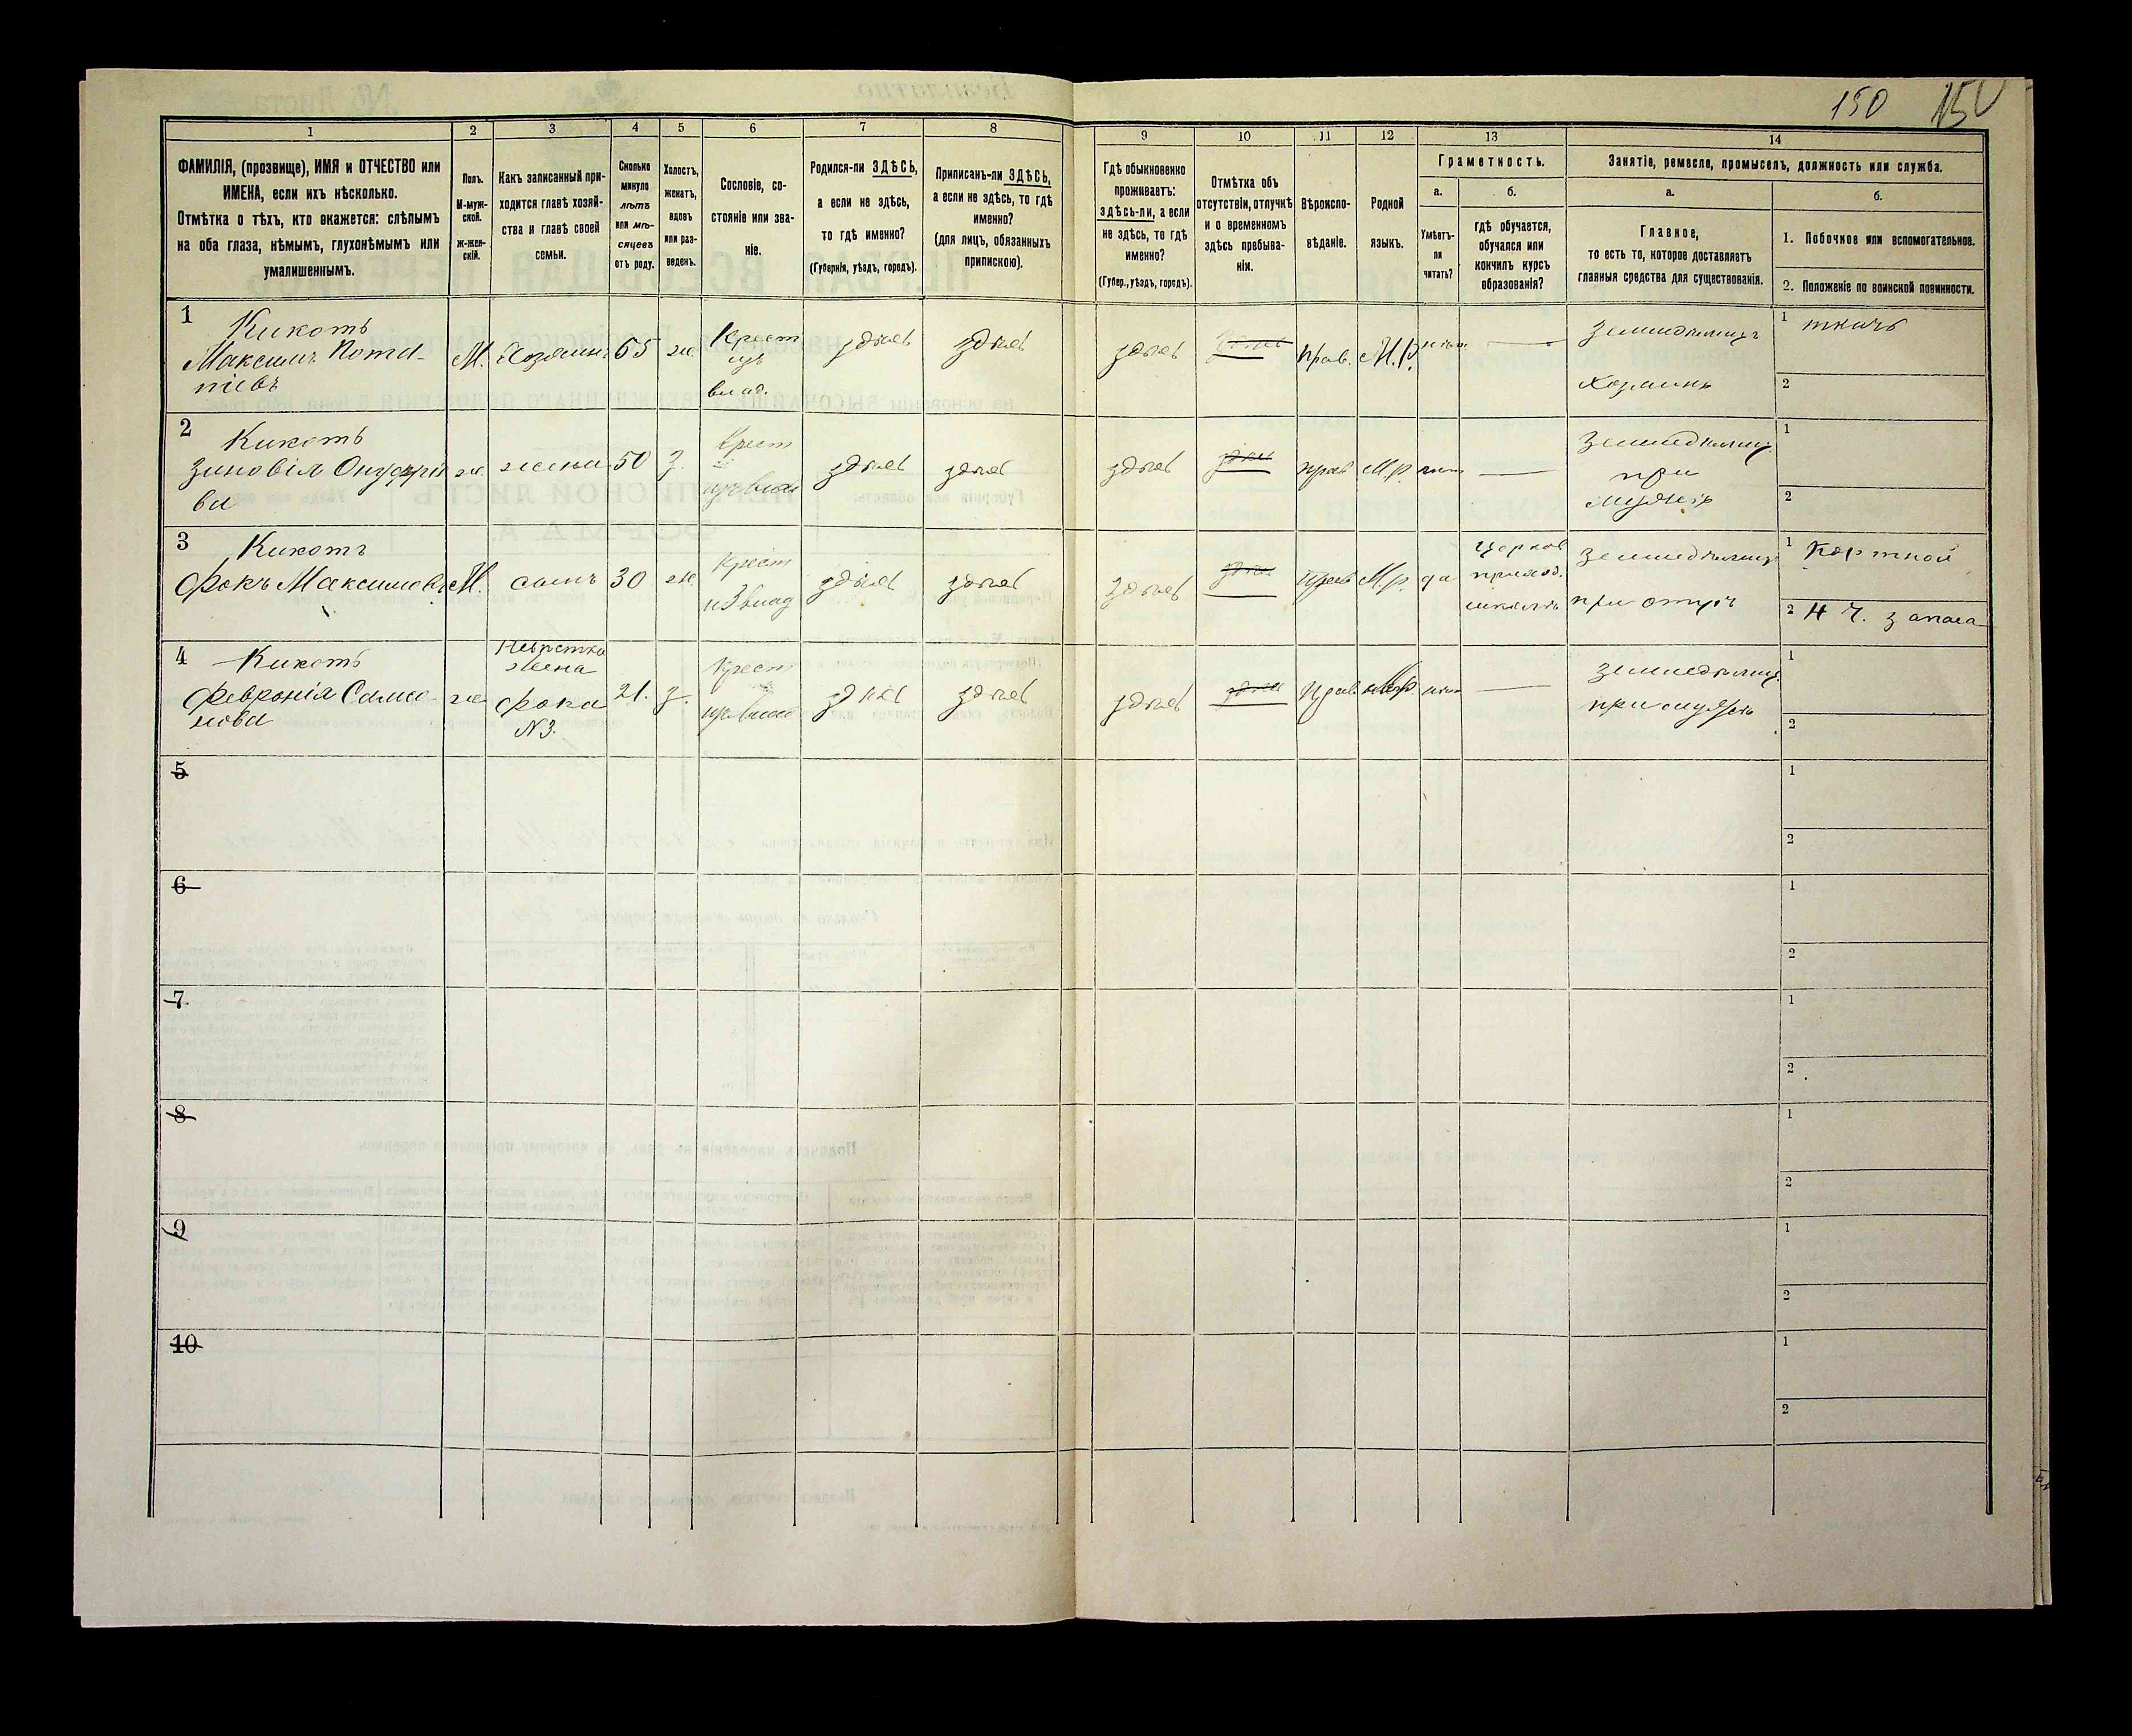 150 150
1 2 3 4 5 6 7 8 9 10 11 12 13 14
ФАМИЛІЯ, (прозвище), ИМЯ и ОТЧЕСТВО или
ИМЕНА, если ихъ нѣсколько.
Отмѣтка о тѣхъ, кто окажется: слѣпымъ
на оба глаза, нѣмымъ, глухонѣмымъ или
умалишеннымъ.
Полъ.
М-муж-
ской.
ж-жен-
скій.
Какъ записанный при-
ходится главѣ хозяй-
ства и главѣ своей
семьи.
Сколько
минуло
лѣтъ
или мѣ-
сяцевъ
отъ роду.
Холостъ,
женатъ,
вдовъ
или раз-
веденъ.
Сословіе, со-
стояніе или зва-
ніе.
Родился-ли ЗДѢСЬ,
а если не здѣсь,
то гдѣ именно?
(Губернія, уѣздъ, городъ).
Приписанъ-ли ЗДѢСЬ,
а если не здѣсь, то гдѣ
именно?
(для лицъ, обязанныхъ
припискою).
Гдѣ обыкновенно
проживаетъ:
здѣсь-ли, а если
не здѣсь, то гдѣ
именно?
(Губер., уѣздъ, городъ).
Отмѣтка объ
отсутствіи, отлучкѣ
и о временномъ
здѣсь пребыва-
ніи.
Вѣроиспо-
вѣданіе.
Родной
языкъ.
Граметность.
а.
Умѣетъ-
ли
читать?
б.
гдѣ обучается,
обучался или
кончилъ курсъ
образованія?
Занятіе, ремесло, промыселъ, должность или служба.
а.
Главное,
то есть то, которое доставляетъ
главныя средства для существованія.
б.
1. Побочное или вспомогательное.
2. Положеніе по воинской повинности.
1
Кикоть
Максимъ Пота-
піевъ
М.
Хозяинъ
65
же.
Крест
изъ
влад.
здѣсь
здѣсь
здѣсь
здѣсь
прав.
М.р.
нѣтъ
—
Земледѣлецъ
Хозяинъ
1 ткачъ
2
2
Кикоть
Зиновія Онуфріе
ва
же
жена
50
з.
Крест
изъ влад
здѣсь
здѣсь
здѣсь
здѣсь
прав
М.р.
нѣтъ
—
Земледѣлец
при
мужѣ
1
2
3
Кикоть
Фокъ Максимовъ
М.
сынъ
30
же.
Крест
из влад
здѣсь
здѣсь
здѣсь
здѣсь
прав
М.р.
да
Церков
приход.
школѣ
Земледѣлецъ
при отцѣ
1 Портной
2 Н Ч. запаса
4
Кикоть
Февронія Самсо-
нова
же
Невѣстка
жена
Фока
N3.
21.
з.
Крест
изъ влад
здѣсь
здѣсь
здѣсь
здѣсь
Прав.
М.р.
нѣтъ
—
Земледѣлец
при мужѣ
1
2
5
1
2
6
1
2
7
1
2
8
1
2
9
1
2
10
1
2